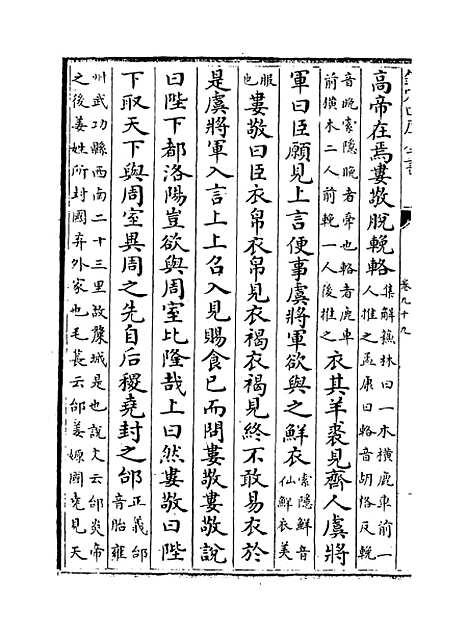 高帝在焉婁敬脫輓輅
集解蘇林曰一木橫鹿車前一
人推之孟康曰輅音胡恪反輓
音晚索隱輓者牽也輅者鹿車
前橫木二人前輓一人後推之
衣其羊裘見齊人虞將
軍曰臣願見上言便事虞將軍欲與之鮮衣
索隱鮮音
仙鮮衣美
服
也
婁敬曰臣衣帛衣帛見衣褐衣褐見終不敢易衣於
是虞將軍入言上上召入見賜食已而問婁敬婁敬說
曰陛下都洛陽豈欲與周室比隆哉上曰然婁敬曰陛
下取天下與周室異周之先自后稷堯封之邰
正義邰
音胎雍
州武功縣西南二十三里故斄城是也說文云邰炎帝
之後姜姓所封國弃外家也毛萇云邰姜嫄國堯見天
卷九十九